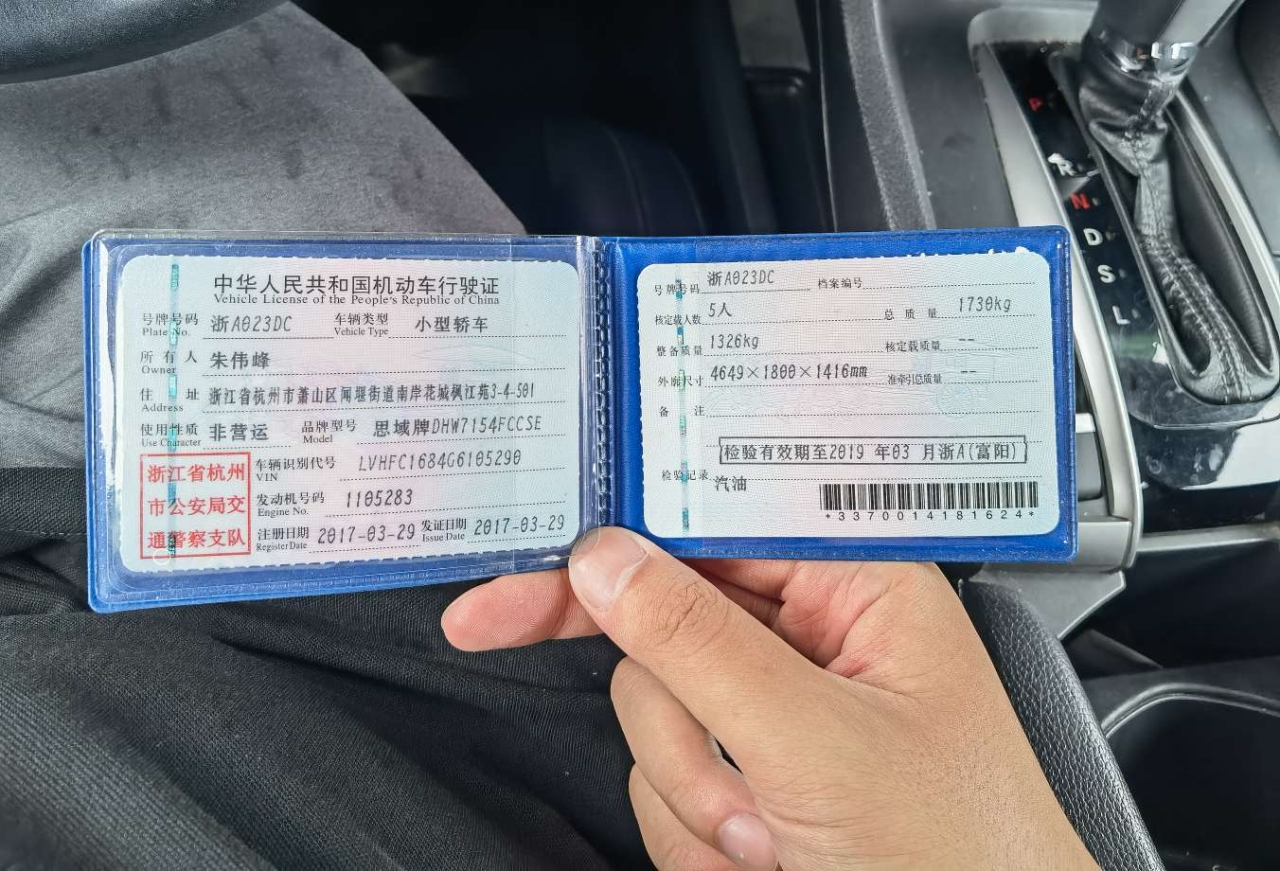 中华人民共和国机动车行驶证
Vehicle License of the People's Republic of China
号牌号码 浙A023DC 车辆类型 小型轿车
Plate No. Vehicle Type
所有人 朱伟峰
Owner
住址 浙江省杭州市萧山区闻堰街道南岸花城枫江苑3-4-501
Address
使用性质 非营运 品牌型号 思域牌DHW7154FCCSE
Use Character Model
浙江省杭州
市公安局交
通警察支队
车辆识别代号 LVHFC1684G6105290
VIN
发动机号码 1105283
Engine No.
注册日期 2017-03-29 发证日期 2017-03-29
Register Date Issue Date
号牌号码 浙A023DC 档案编号
核定载人数 5人 总质量 1730kg
整备质量 1326kg 核定载质量 --
外廓尺寸 4649×1800×1416mm 准牵引总质量 --
备注
检验有效期至2019 年03 月浙A(富阳)
检验记录
汽油
*3370014181624*
P
R
N
D
S
L